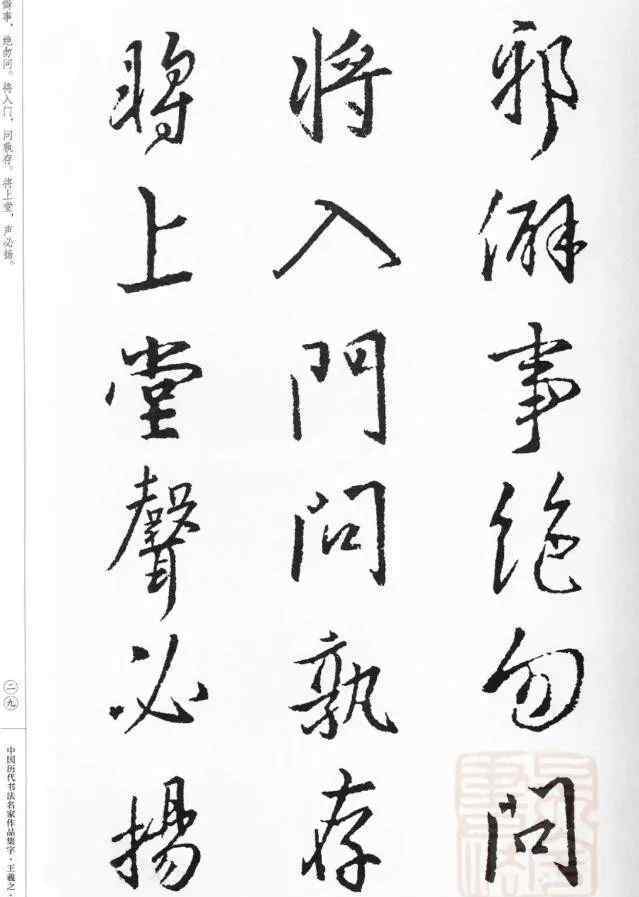 邪僻事絶勿問
將入門問孰存
將上堂聲必揚
僻事，绝勿问。将入门，问孰存。将上堂，声必扬。
二九
中国历代书法名家作品集字·王羲之·